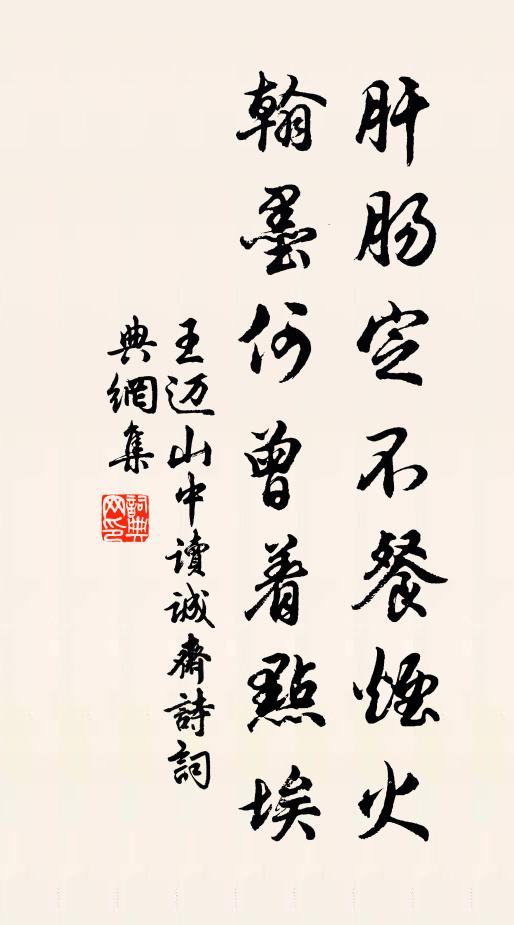 肝肠定不餐煙火
翰墨何曾着點埃
王迈山中讀诚齋詩詞
典網集
詞典网印